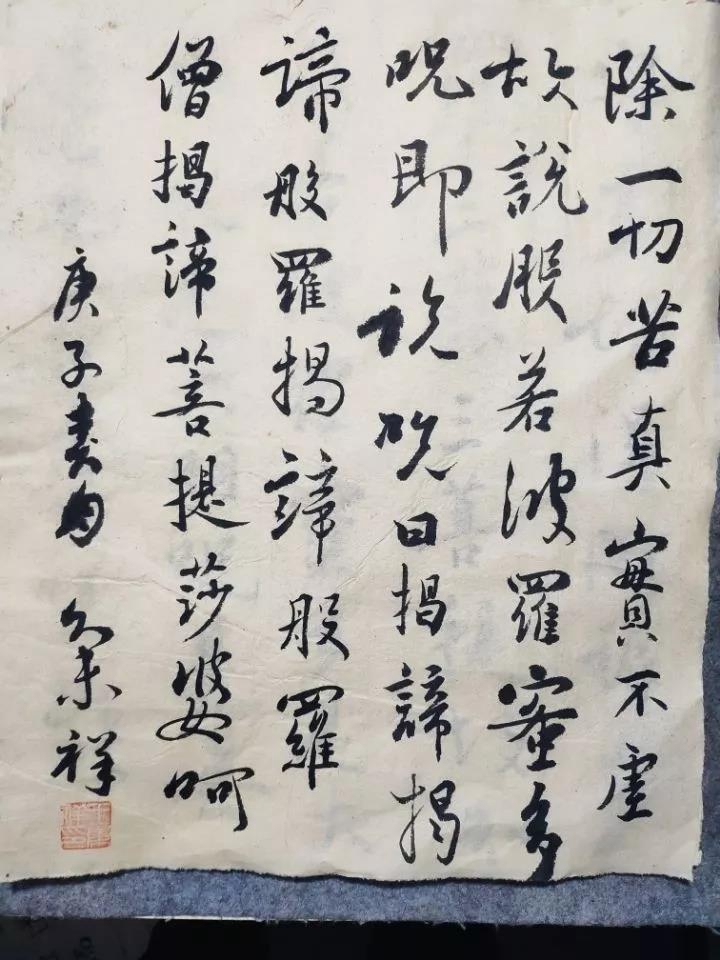 除一切苦真實不虛
故說般若波羅蜜多
呪即說呪曰揭諦揭
諦般羅揭諦般羅
僧揭諦菩提莎婆呵
庚子 祥